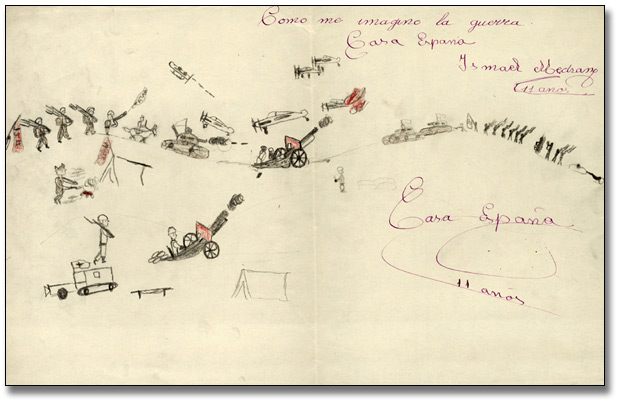 Como me imagino la guerra.
Casa España
Ismael Medrano
11 años
Casa España
11 años